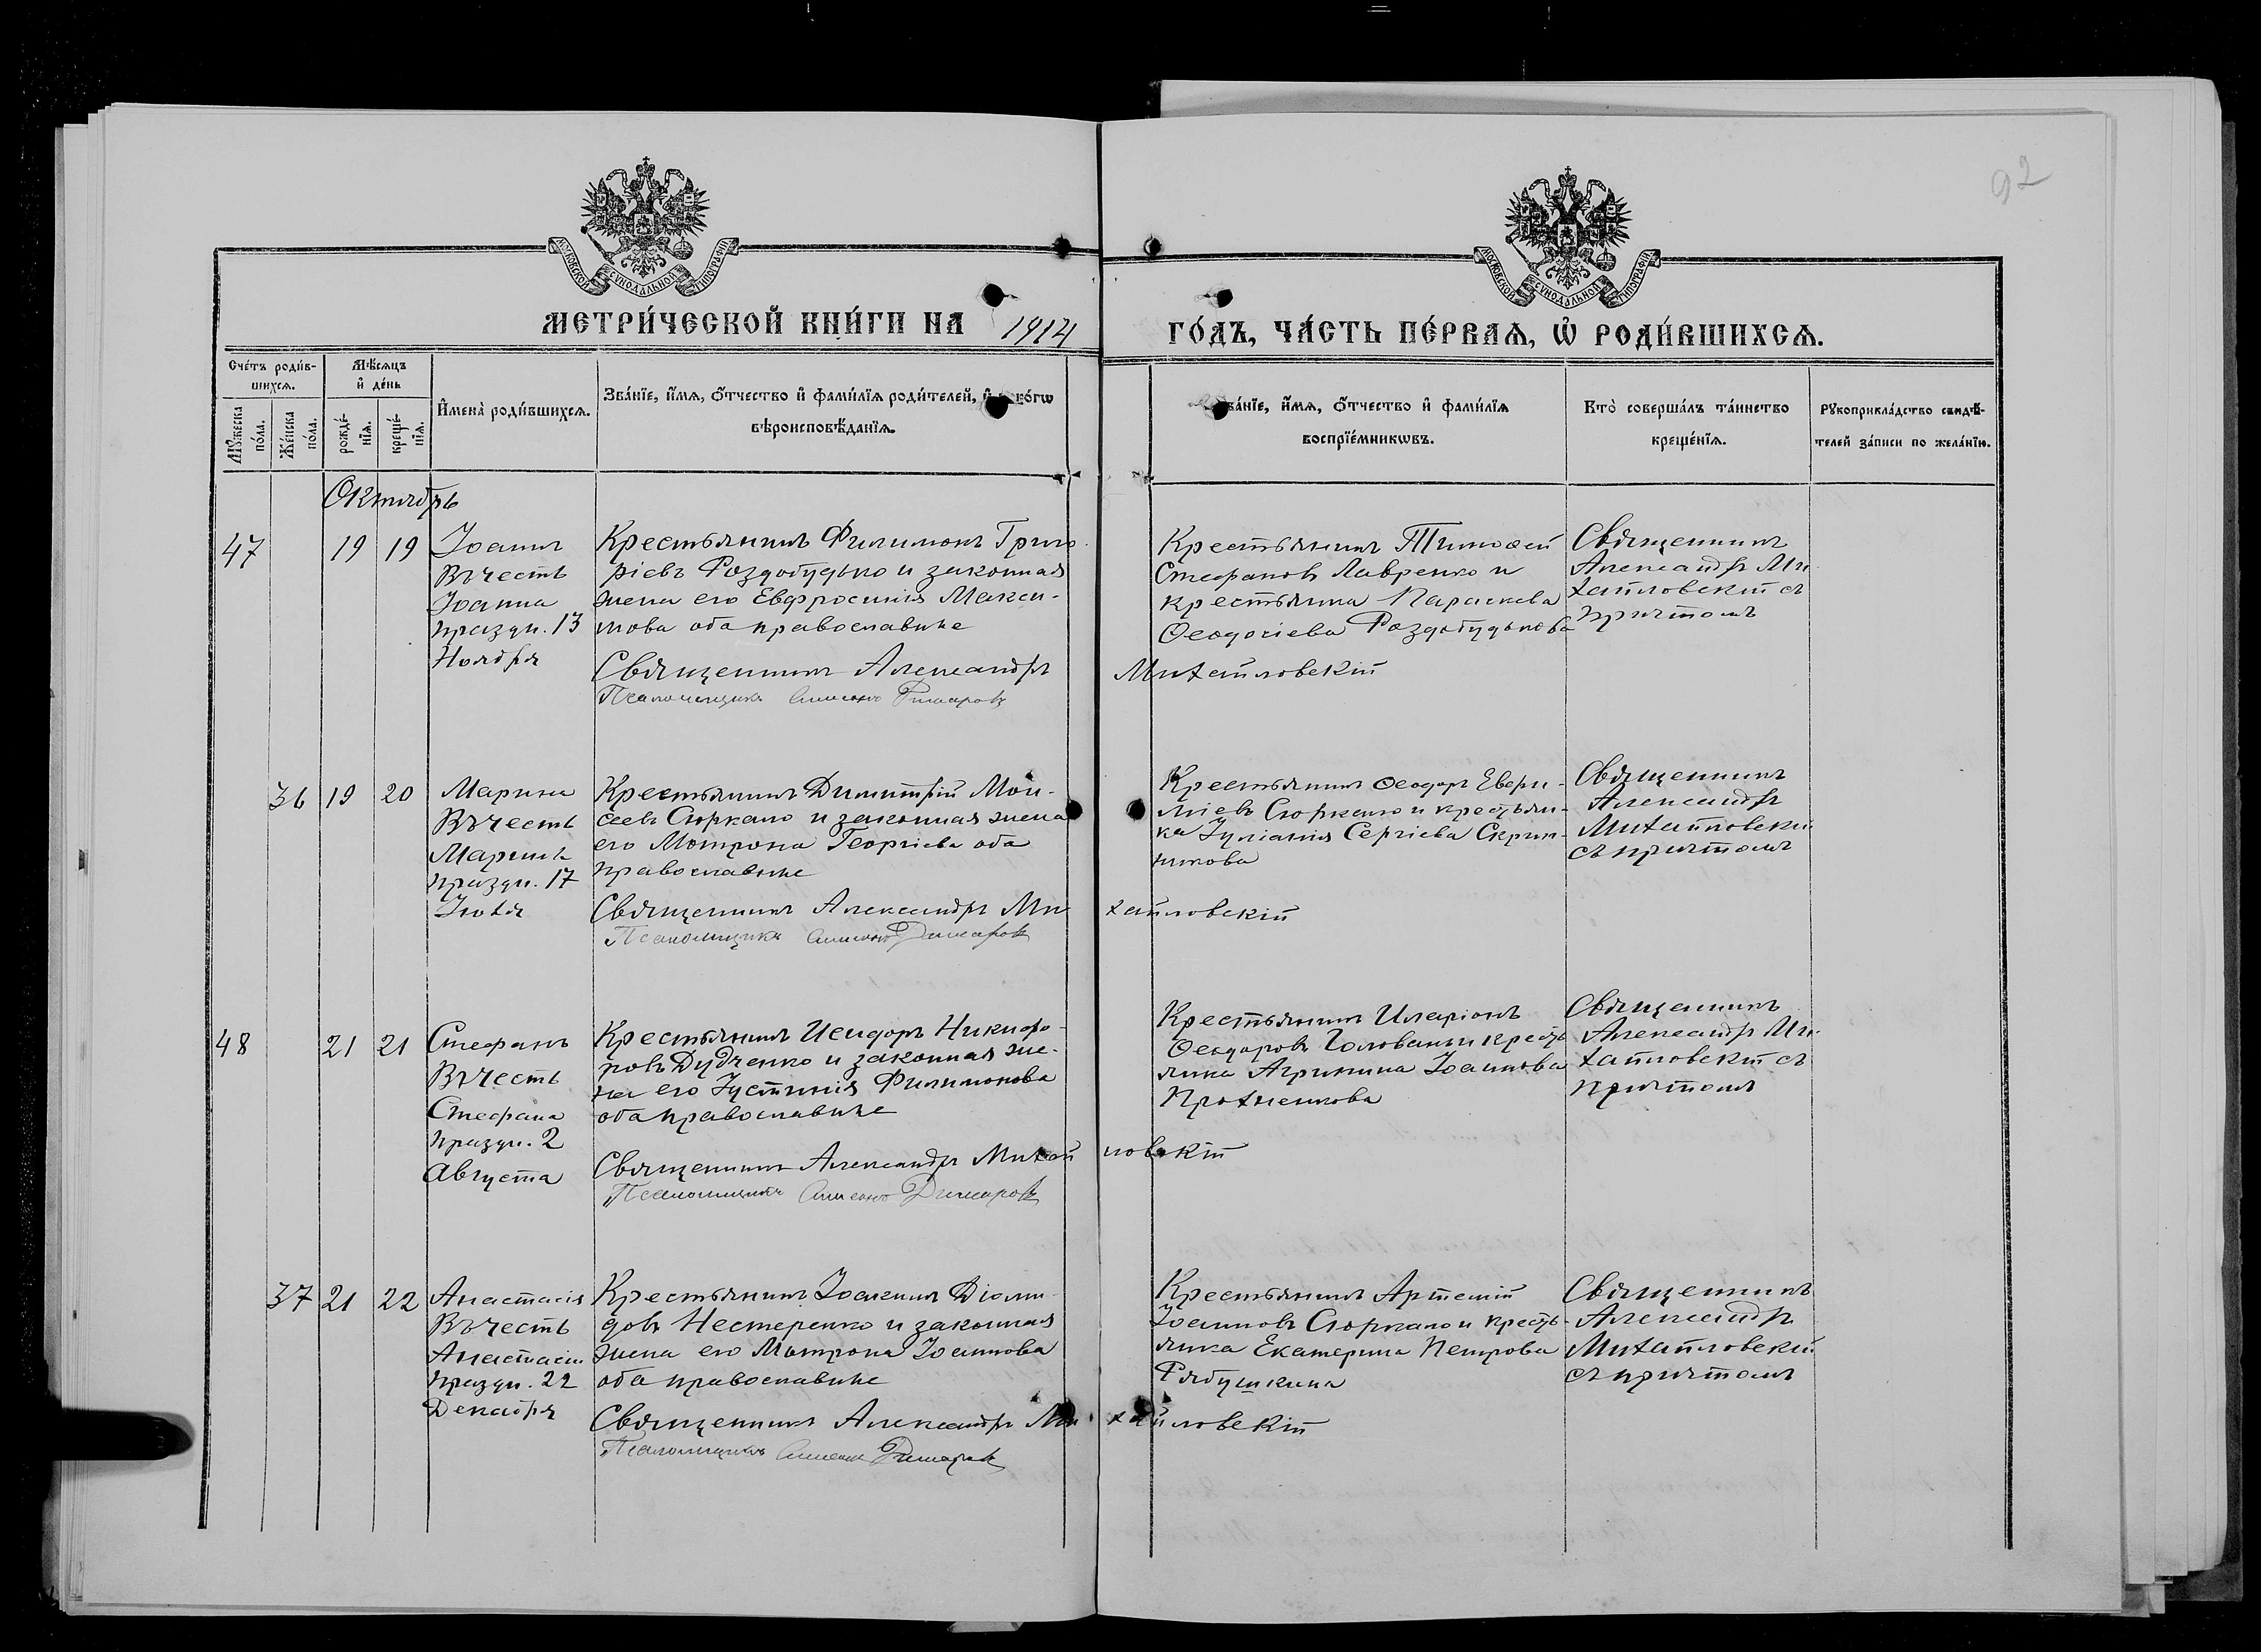 92
МОСКОВСКОЙ СУНОДАЛЬНОЙ ТИПОГРАФІИ
МОСКОВСКОЙ СУНОДАЛЬНОЙ ТИПОГРАФІИ
МЕТРИ́ЧЕСКОЙ КНИ́ГИ НА 1914
ГО́ДЪ, ЧА́СТЬ ПЕ́РВАЯ, Ѡ҆ РОДИ́ВШИХСЯ.
Сче́тъ роди́в-
шихся.
Мѣ́сяцъ
и҆ де́нь
Мꙋ́жеска
по́ла.
Же́нска
по́ла.
рожде́-
нїя.
креще́-
нїя.
И҆мена̀ роди́вшихся.
Зва́нїе, и҆́мя, ѻ҆́тчество и҆ фами́лїя роди́телей, и҆ ко́гѡ
вѣроисповѣ́данїя.
зва́нїе, и҆́мя, ѻ҆́тчество и҆ фами́лїя
воспрїе́мникѡвъ.
Кто̀ соверша́лъ та́инство
креще́нїя.
Рꙋкоприкла́дство свидѣ́-
телей за́писи по жела́нїю.
Октябрь
47 19 19
Іоаннъ
Въ честь
Іоанна
праздн. 13
Ноября
Крестьянинъ Филимонъ Григо-
ріевъ Роздобудько и законная
жена его Евфросинія Макси-
мова оба православные
Священникъ Александръ Михайловскій
Псаломщикъ Симеонъ Димаровъ
Крестьянинъ Тимоѳей
Стефановъ Лавренко и
крестьянка Параскева
Ѳеодосіева Роздобудькова
Священникъ
Александръ Ми-
хайловскій съ
причтомъ
36 19 20
Марина
Въ честь
Марины
праздн. 17
Іюля
Крестьянинъ Димитрій Мои-
сеевъ Сюркало и законная жена
его Матрона Георгіева оба
православные
Священникъ Александръ Михайловскій
Псаломщикъ Симеонъ Димаровъ
Крестьянинъ Ѳеодоръ Евери-
міевъ Сюркало и крестьян-
ка Іуліанія Сергіева Скрин-
никова
Священникъ
Александръ
Михайловскій
съ причтомъ
48 21 21
Стефанъ
Въ честь
Стефана
праздн. 2
Августа
Крестьянинъ Исидоръ Никифо-
ровъ Дудченко и законная же-
на его Іустинія Филимонова
оба православные
Священникъ Александръ Михайловскій
Псаломщикъ Симеонъ Димаровъ
Крестьянинъ Иларіонъ
Ѳеодоровъ Головань и кресть-
янка Агрипина Іоаннова
Прохненкова
Священникъ
Александръ Ми-
хайловскій съ
причтомъ
37 21 22
Анастасія
Въ честь
Анастасіи
праздн. 22
Декабря
Крестьянинъ Іоакимъ Діоми-
довъ Нестеренко и законная
жена его Матрона Іоаннова
оба православные
Священникъ Александръ Михайловскій
Псаломщикъ Симеонъ Димаровъ
Крестьянинъ Артемій
Іоанновъ Сюркало и кресть-
янка Екатерина Петрова
Рябушкина
Священникъ
Александръ
Михайловскій
съ причтомъ